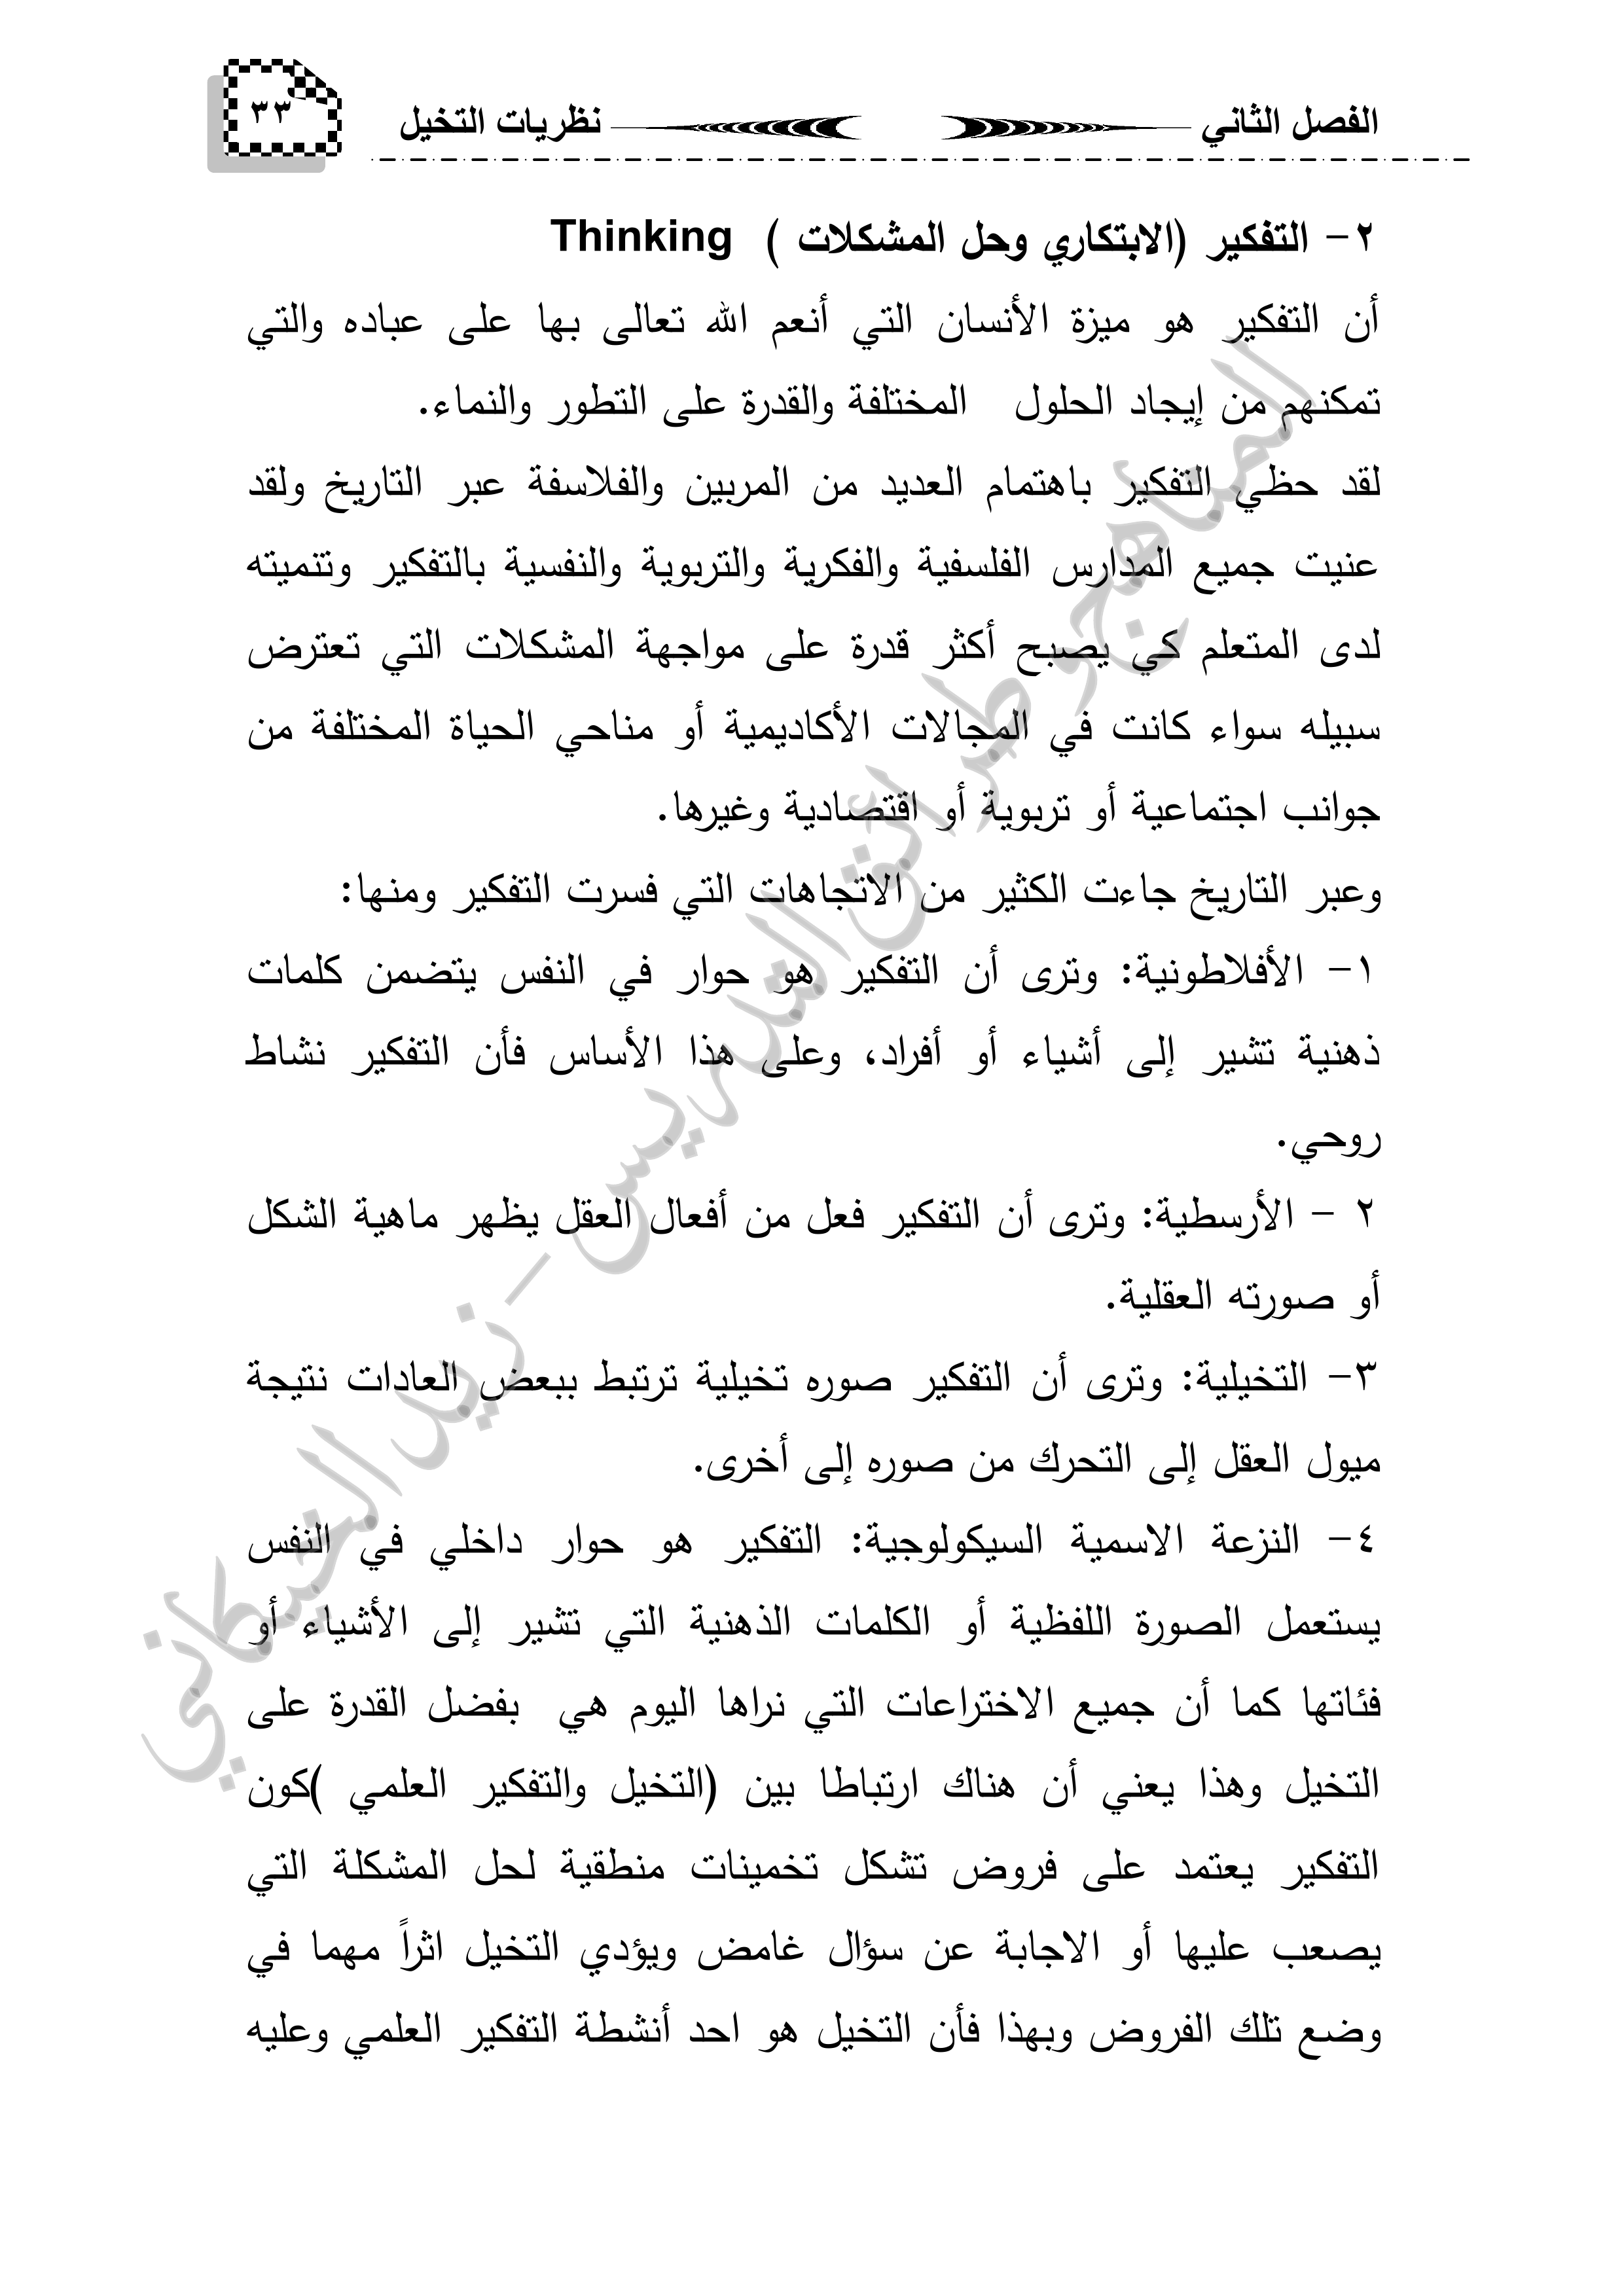 الفصل الثاني نظريات التخيل ٣٣
٢- التفكير (الابتكاري وحل المشكلات ) Thinking
أن التفكير هو ميزة الأنسان التي أنعم الله تعالى بها على عباده والتي
تمكنهم من إيجاد الحلول المختلفة والقدرة على التطور والنماء.
لقد حظي التفكير باهتمام العديد من المربين والفلاسفة عبر التاريخ ولقد
عنيت جميع المدارس الفلسفية والفكرية والتربوية والنفسية بالتفكير وتنميته
لدى المتعلم كي يصبح أكثر قدرة على مواجهة المشكلات التي تعترض
سبيله سواء كانت في المجالات الأكاديمية أو مناحي الحياة المختلفة من
جوانب اجتماعية أو تربوية أو اقتصادية وغيرها.
وعبر التاريخ جاءت الكثير من الاتجاهات التي فسرت التفكير ومنها:
١- الأفلاطونية: وترى أن التفكير هو حوار في النفس يتضمن كلمات
ذهنية تشير إلى أشياء أو أفراد، وعلى هذا الأساس فأن التفكير نشاط
روحي.
٢ - الأرسطية: وترى أن التفكير فعل من أفعال العقل يظهر ماهية الشكل
أو صورته العقلية.
٣- التخيلية: وترى أن التفكير صوره تخيلية ترتبط ببعض العادات نتيجة
ميول العقل إلى التحرك من صوره إلى أخرى.
٤- النزعة الاسمية السيكولوجية: التفكير هو حوار داخلي في النفس
يستعمل الصورة اللفظية أو الكلمات الذهنية التي تشير إلى الأشياء أو
فئاتها كما أن جميع الاختراعات التي نراها اليوم هي بفضل القدرة على
التخيل وهذا يعني أن هناك ارتباطا بين (التخيل والتفكير العلمي )كون
التفكير يعتمد على فروض تشكل تخمينات منطقية لحل المشكلة التي
يصعب عليها أو الاجابة عن سؤال غامض ويؤدي التخيل اثراً مهما في
وضع تلك الفروض وبهذا فأن التخيل هو احد أنشطة التفكير العلمي وعليه
المناهج وطرائق التدريس - زيد الخيكاني